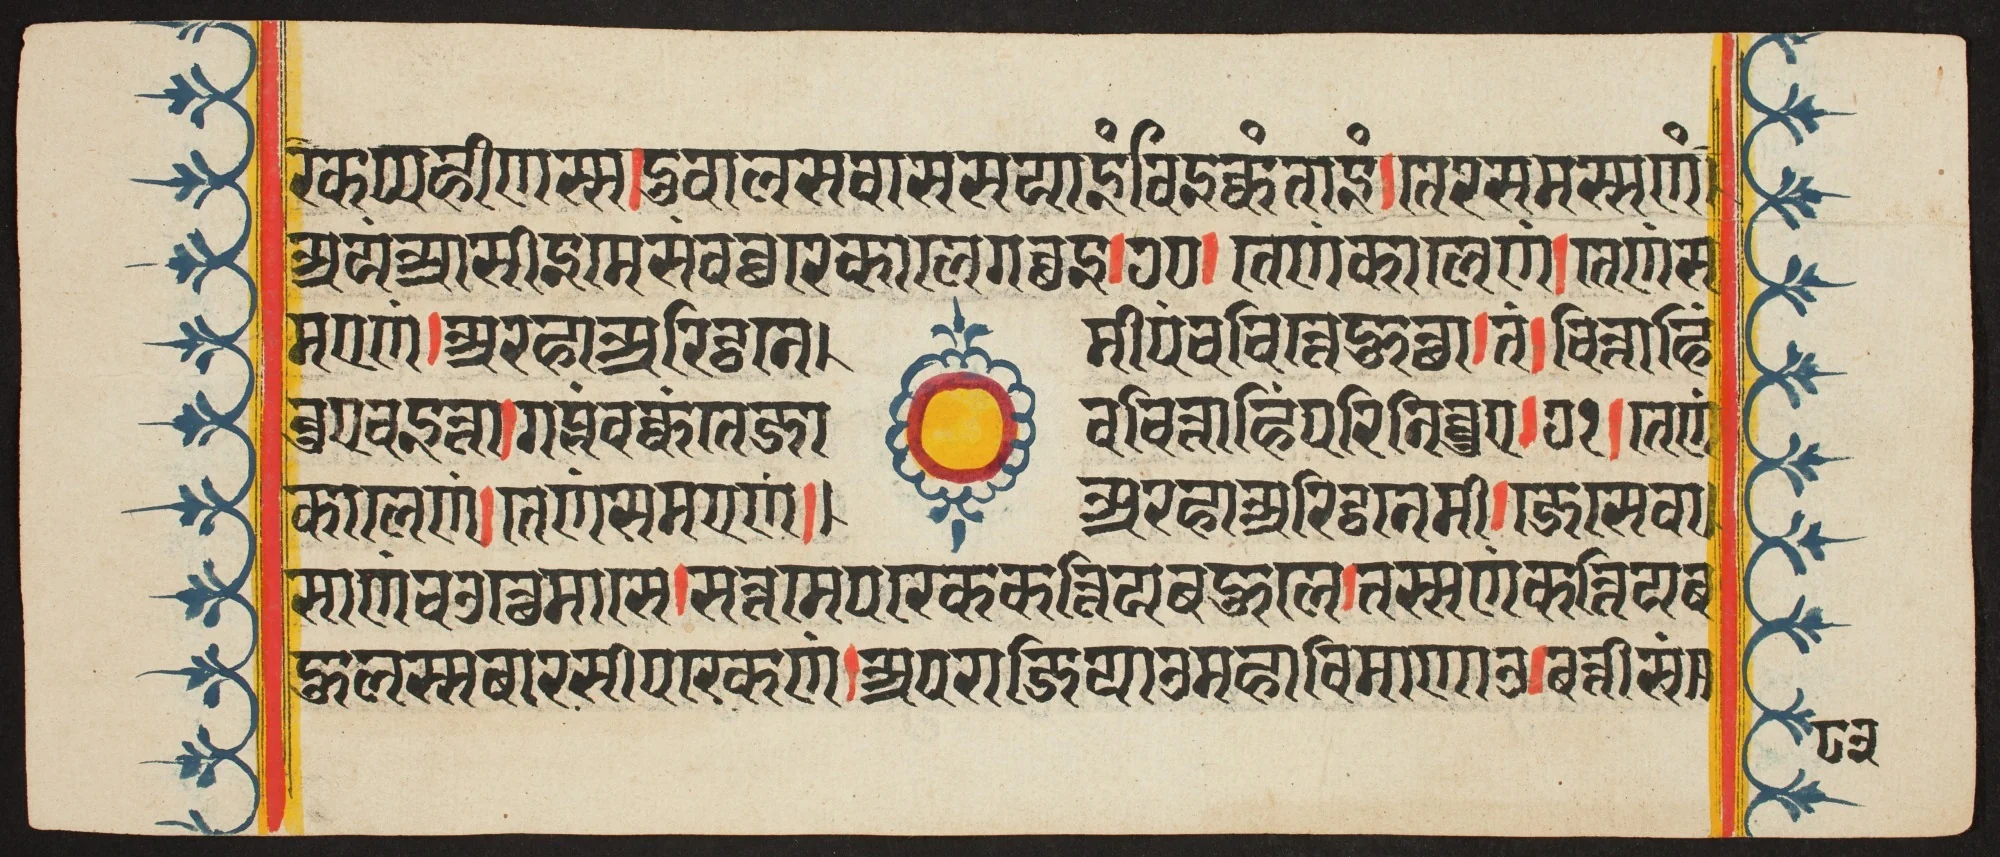 क्खप्पहीणस्स।दुवालसवाससयाइंविइक्कंताइं।तेरसमस्सणं
अयंअसीइमेसंवच्छरेकालेगच्छइ।७०।तेणंकालेणं।तेणंस
मएणं।अरहाअरिट्ठने। मीपंचचित्तेहुत्था।तं।चित्ताहिं
चुएचइत्ता।गब्भंवक्कंतेजा वचित्ताहिंपरिनिव्वुए।७१।तेणं
कालेणं।तेणंसमएणं।। अरहाअरिट्ठनेमी।जेसेवा
साणंचउत्थेमासे।सत्तमेपक्खेकत्तियबहुले।तस्सणंकत्तियब
हुलस्सबारसीपक्खेणं।अपराजियाओमहाविमाणाओ।बत्तीसं
८३